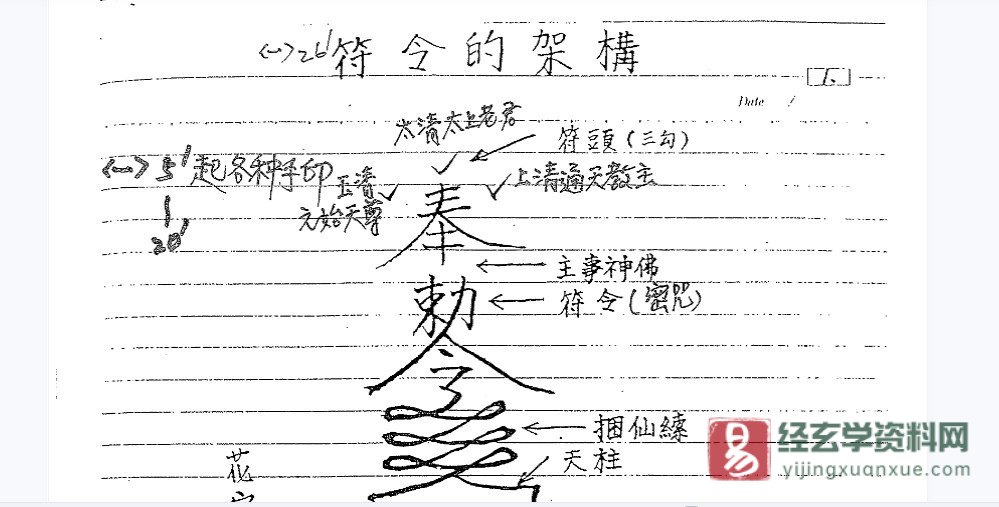 <一>26' 符令的架構
1.
Date /
太清太上老君
符頭(三勾)
<一>5' 起各种手印
20'
玉清
元始天尊
上清通天教主
奉
主事神佛
勅
符令(密咒)
令
捆仙練
天柱
花
易
经玄学资料网
yijingxuanxue.com